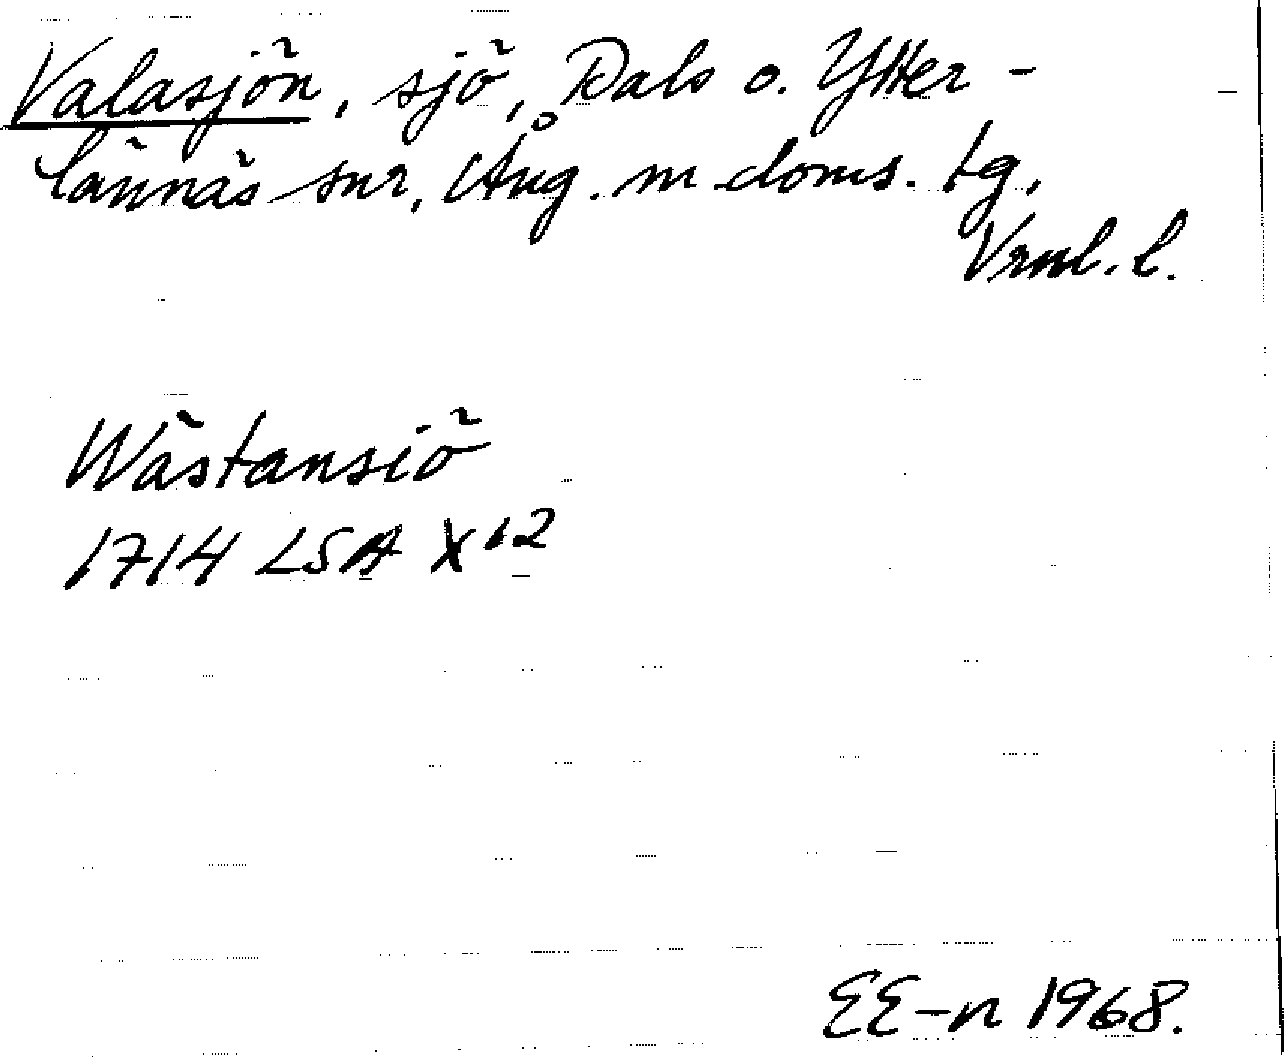 Valasjön, sjö, Dals o. Ytter-
lännäs snr, Ång. m doms. tg,
Vrnl. l.
Wästansiö
1714 LSA X 12
EE-n 1968.